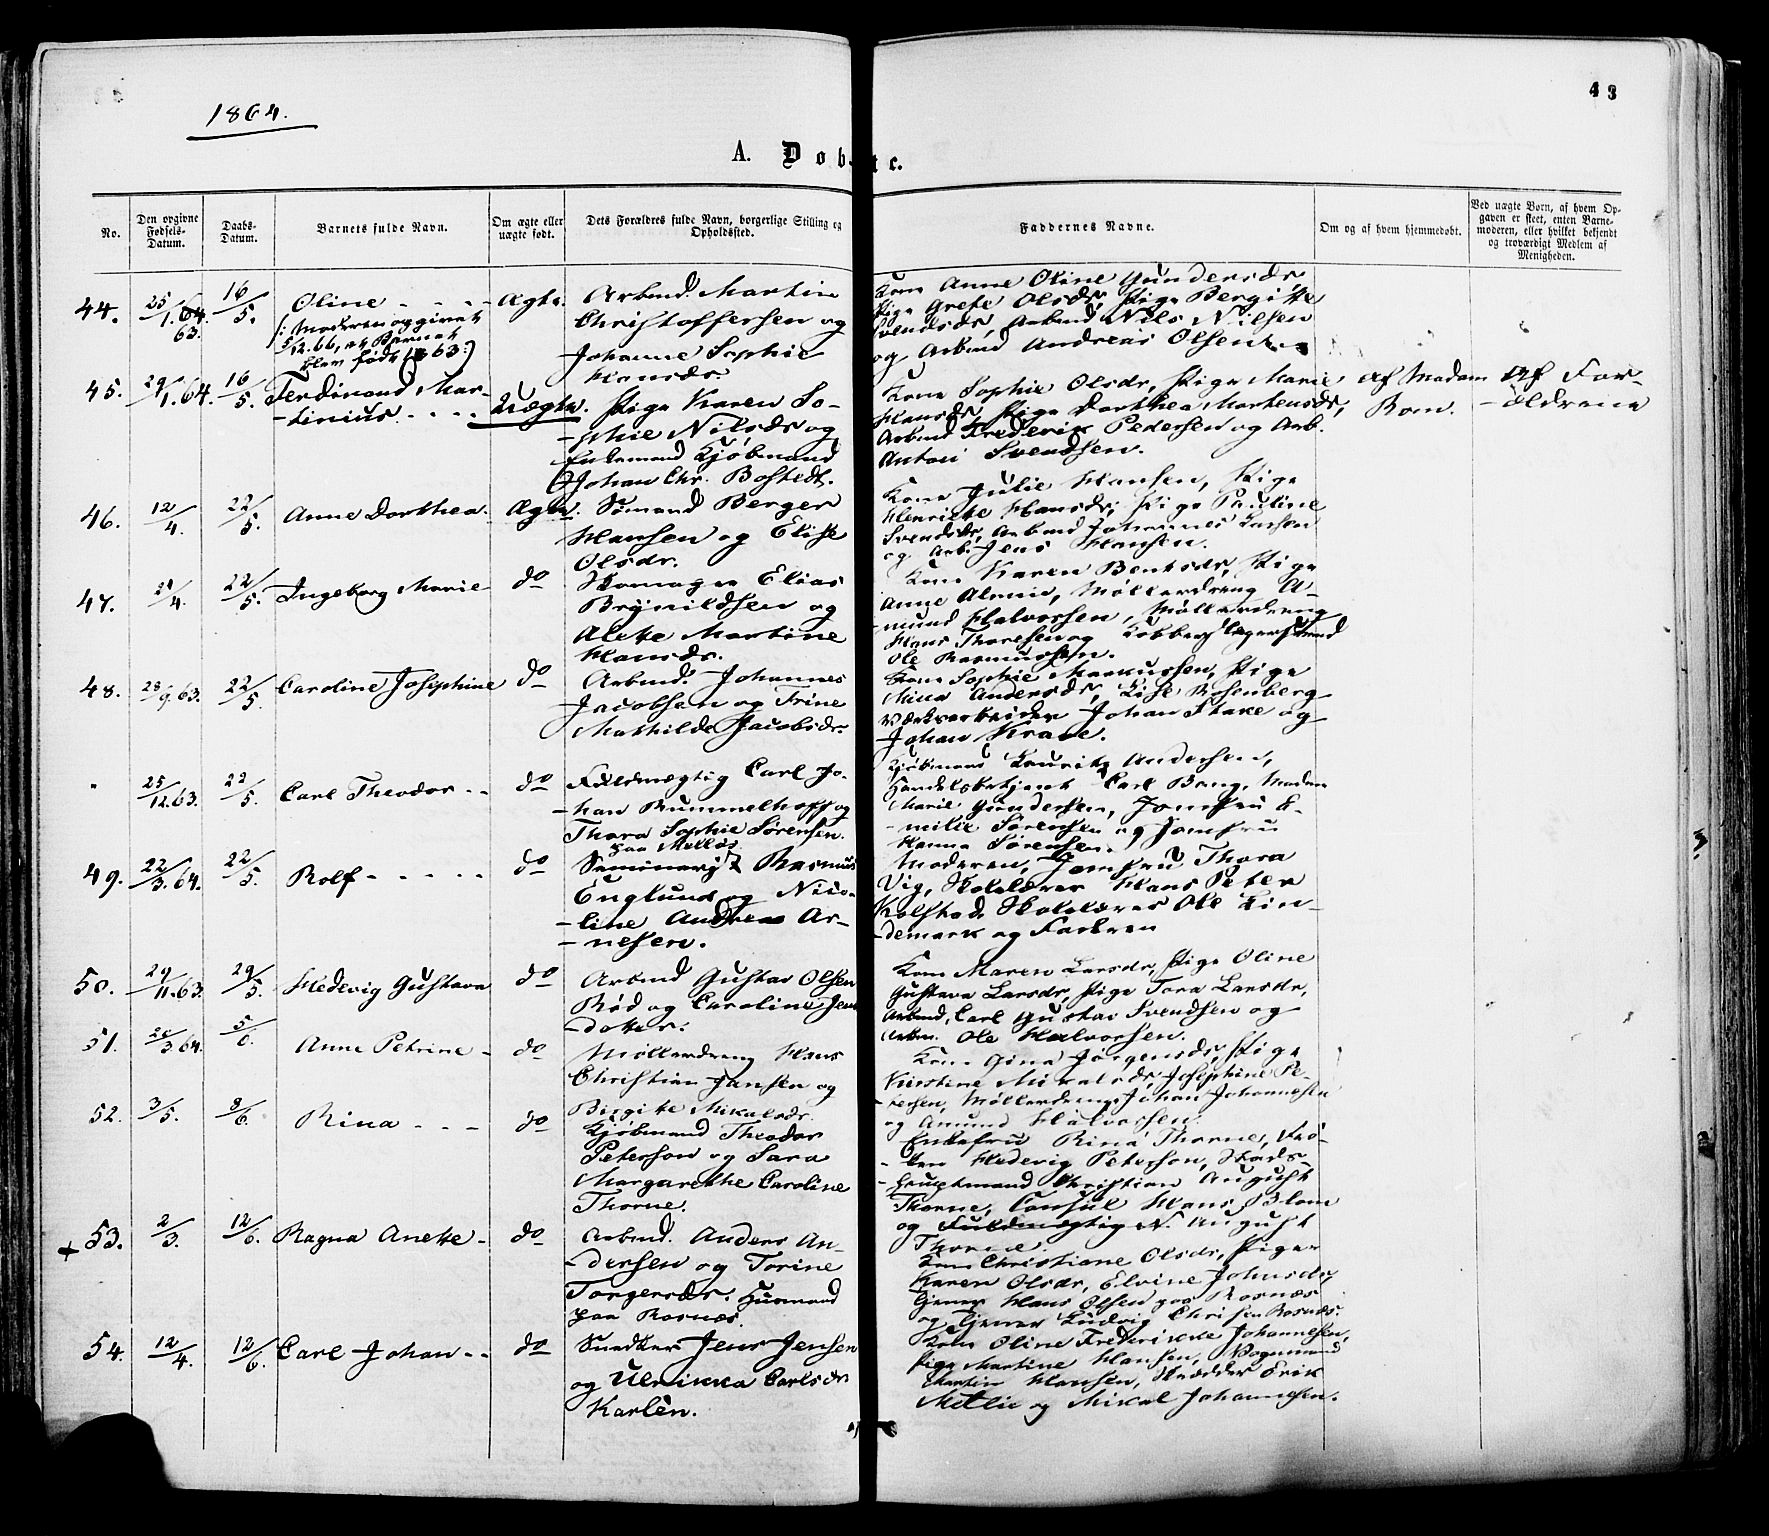 1864.
43
A. Døbte.
No.
Den opgivne Fødsels-Datum.
Daabs-Datum.
Barnets fulde Navn.
Om ægte eller uægte født.
Dets Forældres fulde Navn, borgerlige Stilling og Opholdssted.
Faddernes Navne.
Om og af hvem hjemmedøbt.
Ved uægte Børn, af hvem Opgaven er skeet, enten Barnemoderen, eller hvilket bekjendt og troværdigt Medlem af Menigheden.
44. 25/1.64. 63. 16/5. Oline - - - Ægte.
(: Moderen opgivet
5/12.66, at Barnet
blev født 1863 :)
Arbmd. Martin
Christoffersen og
Johanne Sophie
Hansdr.
Kone Anne Oline Gundersdr,
Pige Grete Olsdr, Pige Bergitte
Svendsdr, Arbmd Nils Nilsen
og Arbmd Andreas Olsen
45. 29/1.64. 16/5. Ferdinand Mar-
-tinius. - - - Uægte.
Pige Karen So-
-phie Nilsdr og
Enkemand Kjøbmand
Johan Chr. Bostedt.
Kone Sophie Olsdr, Pige Marie
Hansdr, Pige Dorthea Mortensdr,
Arbmd Frederik Pedersen og Arb.
Anton Svendsen.
Af Madam
Bom.
Af For-
-ældrene
46. 12/4. 22/5. Anne Dorthea. Ægte.
Sømand Berger
Hansen og Elise
Olsdr.
Kone Julie Hansen, Pige
Henriette Hansdr, Pige Pauline
Svendsdr, Arbmd Johannes Larsen
og Arb. Jens Hansen.
47. /4. 22/5. Ingeborg Marie do
Skomager Elias
Brynildsen og
Alette Martine
Hansdr.
Kone Karen Bentsdr, Pige
Anne , Møllerdreng A-
-mund Halvorsen, Møllerdreng
Hans Thoresen og Kobberslagersvend
Ole Rasmussen.
48. 28/9.63. 22/5. Caroline Josephine do
Arbmd. Johannes
Jacobsen og Trine
Mathilde Jacobsdr.
Kone Sophie Markussen, Pige
Mina Andersdr, Lise Rosenberg
Værksarbeider Johan Stake og
Johan Krave.
" 25/12.63. 22/5. Carl Theodor - - do
Fuldmægtig Carl Jo-
-han Rummelhoff og
Thora Sophie Sørensen.
paa Melløs
Kjøbmand Lauritz Andersen,
Handelsbetjent Carl Bang, Madam
Marie Gundersen, Jomfru E-
-milie Sørensen og Jomfru
Hanna Sørensen.
49. 22/3.64. 22/5. Rolf - - - - - do
Seminarist Rasmus
Englund og Nico-
-line Andrea Ar-
-nesen.
Moderen, Jomfru Thora
Vig, Skolelærer Hans Peter
Kolstad, Skolelærer Ole Lin-
-demark og Faderen
50. 29/11.63. 29/5. Hedevig Gustava do
Arbmd Gustav Olsen
Rød og Caroline Jens
-datter.
Kone Maren Larsdr, Pige Oline
Gustava Larsdr, Pige Tora Larsdr,
Arbmd, Carl Gustav Svendsen og
Arbm. Ole Halvorsen.
51. 26/3.64. 5/6. Anne Petrine - do
Møllerdreng Hans
Christian Jansen og
Birgitte Mikalsdr.
Kone Gina Jørgensdr, Pige
Kirstine Mikalsdr, Josephine Pe-
-tersen, Møllerdreng Johan Johannesen
og Amund Halvorsen.
52. 3/5. 8/6. Rina - - - do
Kjøbmand Theodor
Peterson og Sara
Margarethe Caroline
Thorne.
Enkefru Rina Thorne, Frø-
-ken Hedevig Peterson, Stads-
-hauptmand Christian August
Thorne, Consul Hans Blom
og Fuldmægtig N. August
Thorne.
+ 53. 2/3. 12/6. Ragna Anette - do
Arbmd. Anders An-
-dersen og Torine
Torgersdr. Husmand
paa Rosnæs.
Kone Christiane Olsdr, Piger
Karen Olsdr, Elvine Johnsdr,
Tjener Hans Olsen paa Rosnæs
og Tjener Ludvig Chrisen Rosnæs.
54. 12/4. 12/6. Carl Johan - - do
Snedker Jens Jensen
og Ulrikka Carlsdr
Karlén.
Kone Oline Frederikke Johannesen,
Pige Martine Hansen, Vognmand
Martin Hansen, Skrædder Erik
Metlie og Mikal Johannesen.